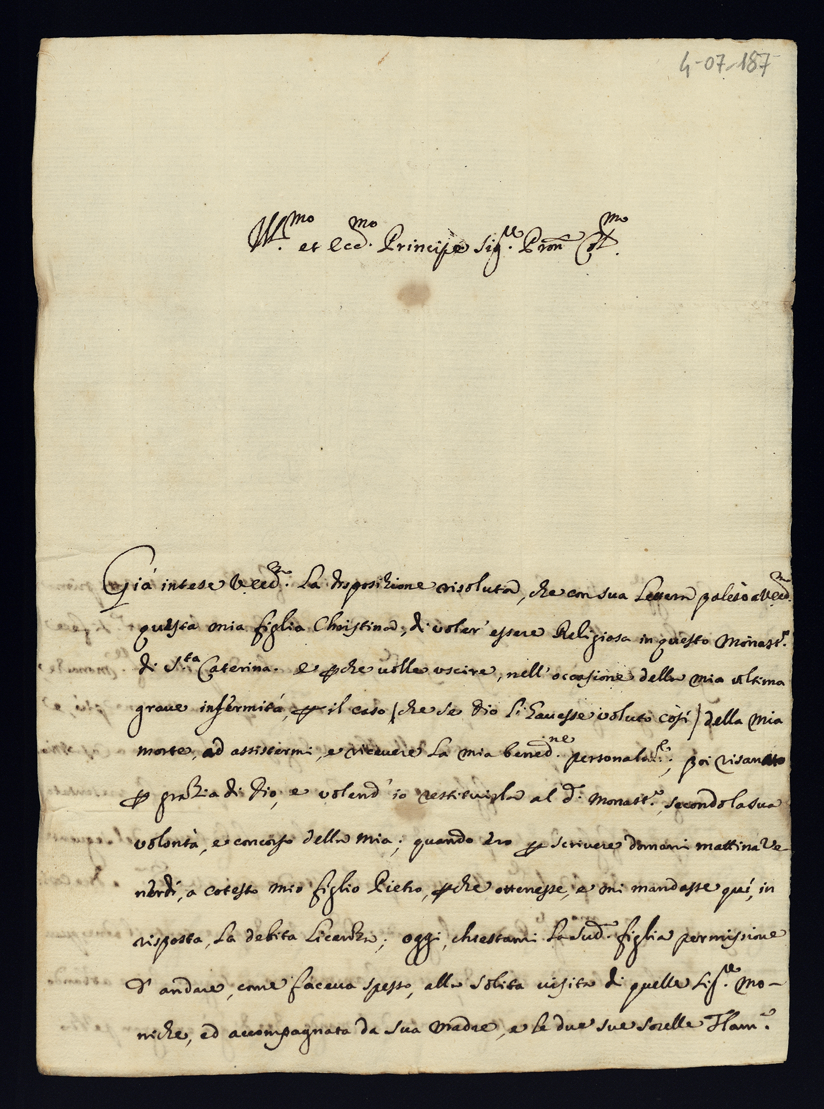 4-07-187
Ill.mo et Ecc.mo Principe Sig.re Pron Col.mo
Già intese V. Ecc.a la disposizione risoluta, che con sua Lettera palesò all'Ecc.a
questa mia figlia Christina, di voler' essere Religiosa in questo Monast.o
di S.ta Caterina. e pche volle uscire, nell'occasione della mia ultima
grave infermità, p il caso (che se Dio l'havesse voluto così) della mia
morte, ad assistermi, e ricevere la mia bened.ne personal; poi risanato
p grazia di Dio, e volend' io restituirla al d.o Monast.o, secondo la sua
volontà, e concorso della mia; quando ero p scrivere domani mattina Ve-
nerdì, a cotesto mio figlio Pietro, pche ottenesse, e mi mandasse quì, in
risposta, la debita Licenza; oggi, chiestami la sud.a figlia permissione
d'andare, come faceva spesso, alla solita visita di quelle Sig.re Mo-
niche, ed accompagnata da sua Madre, e le due sue sorelle Flam.a